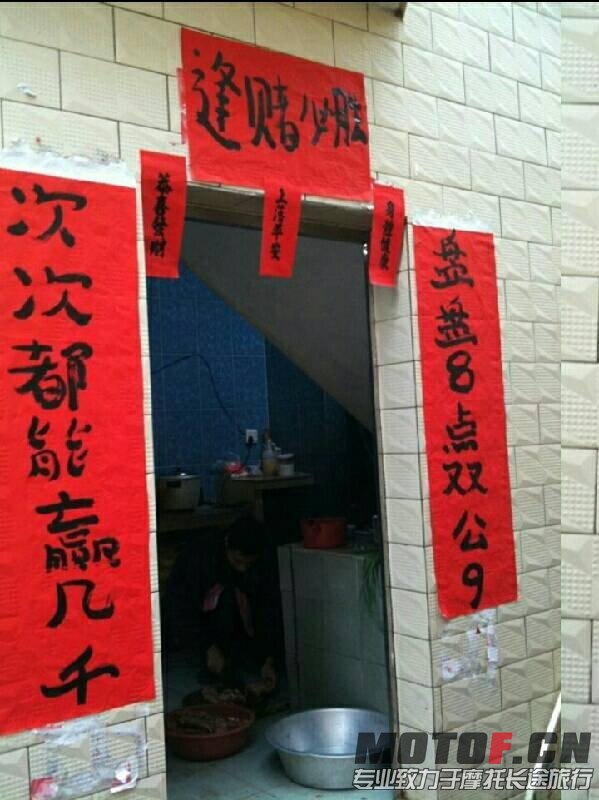 逢赌必胜
恭喜發财
上落平安
身體健康
盘盘8点双公9
次次都能赢几千
MOTOF.CN
专业致力于摩托长途旅行